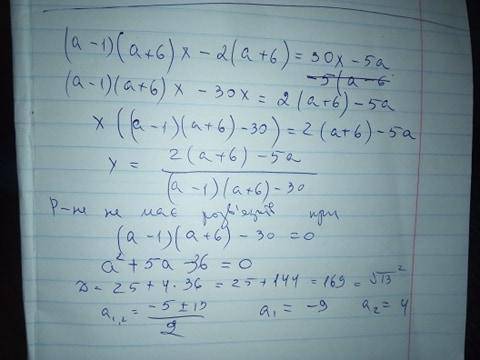 (a-1)(a+6)x - 2(a+6) = 30x - 5a
-5(a-6
(a-1)(a+6)x - 30x = 2(a+6) - 5a
x((a-1)(a+6) - 30) = 2(a+6) - 5a
x = \frac{2(a+6) - 5a}{(a-1)(a+6) - 30}
Р-ня не має розв'язків при
(a-1)(a+6) - 30 = 0
a² + 5a - 36 = 0
D = 25 + 4·36 = 25 + 144 = 169 = √13²
a₁,₂ = \frac{-5 ± 13}{2} a₁ = -9 a₂ = 4